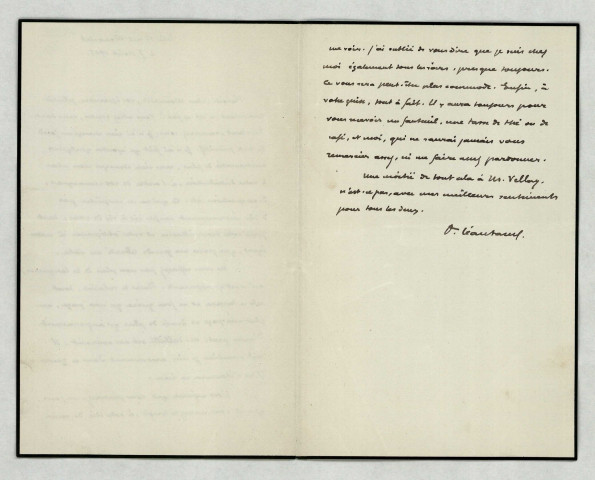 me voir. j'ai oublié de vous dire que je suis chez
moi également tous les jours, presque toujours.
Ce vous sera peut-être plus commode. Enfin, à
votre guise, tout à fait. Il y aura toujours pour
vous recevoir un fauteuil, une tasse de thé ou de
café, et moi, qui ne saurai jamais vous
remercier assez, ni me faire assez pardonner.
Une moitié de tout cela à M. Vellay,
n'est-ce pas, avec mes meilleurs sentiments
pour tous les deux.
P. Léautaud.